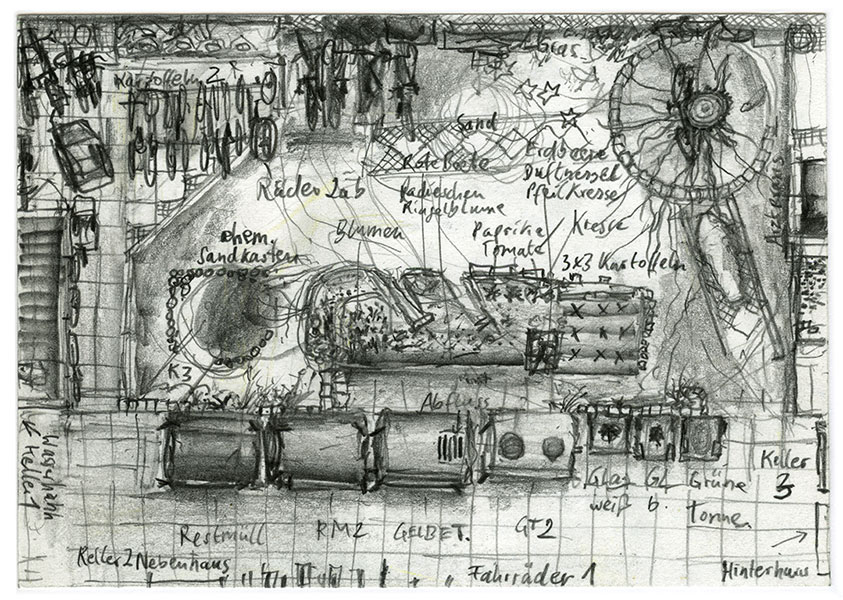 Glas
Kartoffeln 2
Sand
Rote Beete
Erdbeere
Duftnessel
Pfeilkresse
Räder 2ab
Radieschen
Ringelblume
Blumen
Paprika
Tomate
Kresse
ehem.
Sandkasten
3x3 Kartoffeln
K3
Abfluss
Wasserhahn
Keller 1
Glas
weiß
GL
b.
Grüne
Tonnen
Keller
3
Restmüll
RM2
GELBET.
GT2
Keller 2 Nebenhaus
Fahrräder 1
Hinterhaus